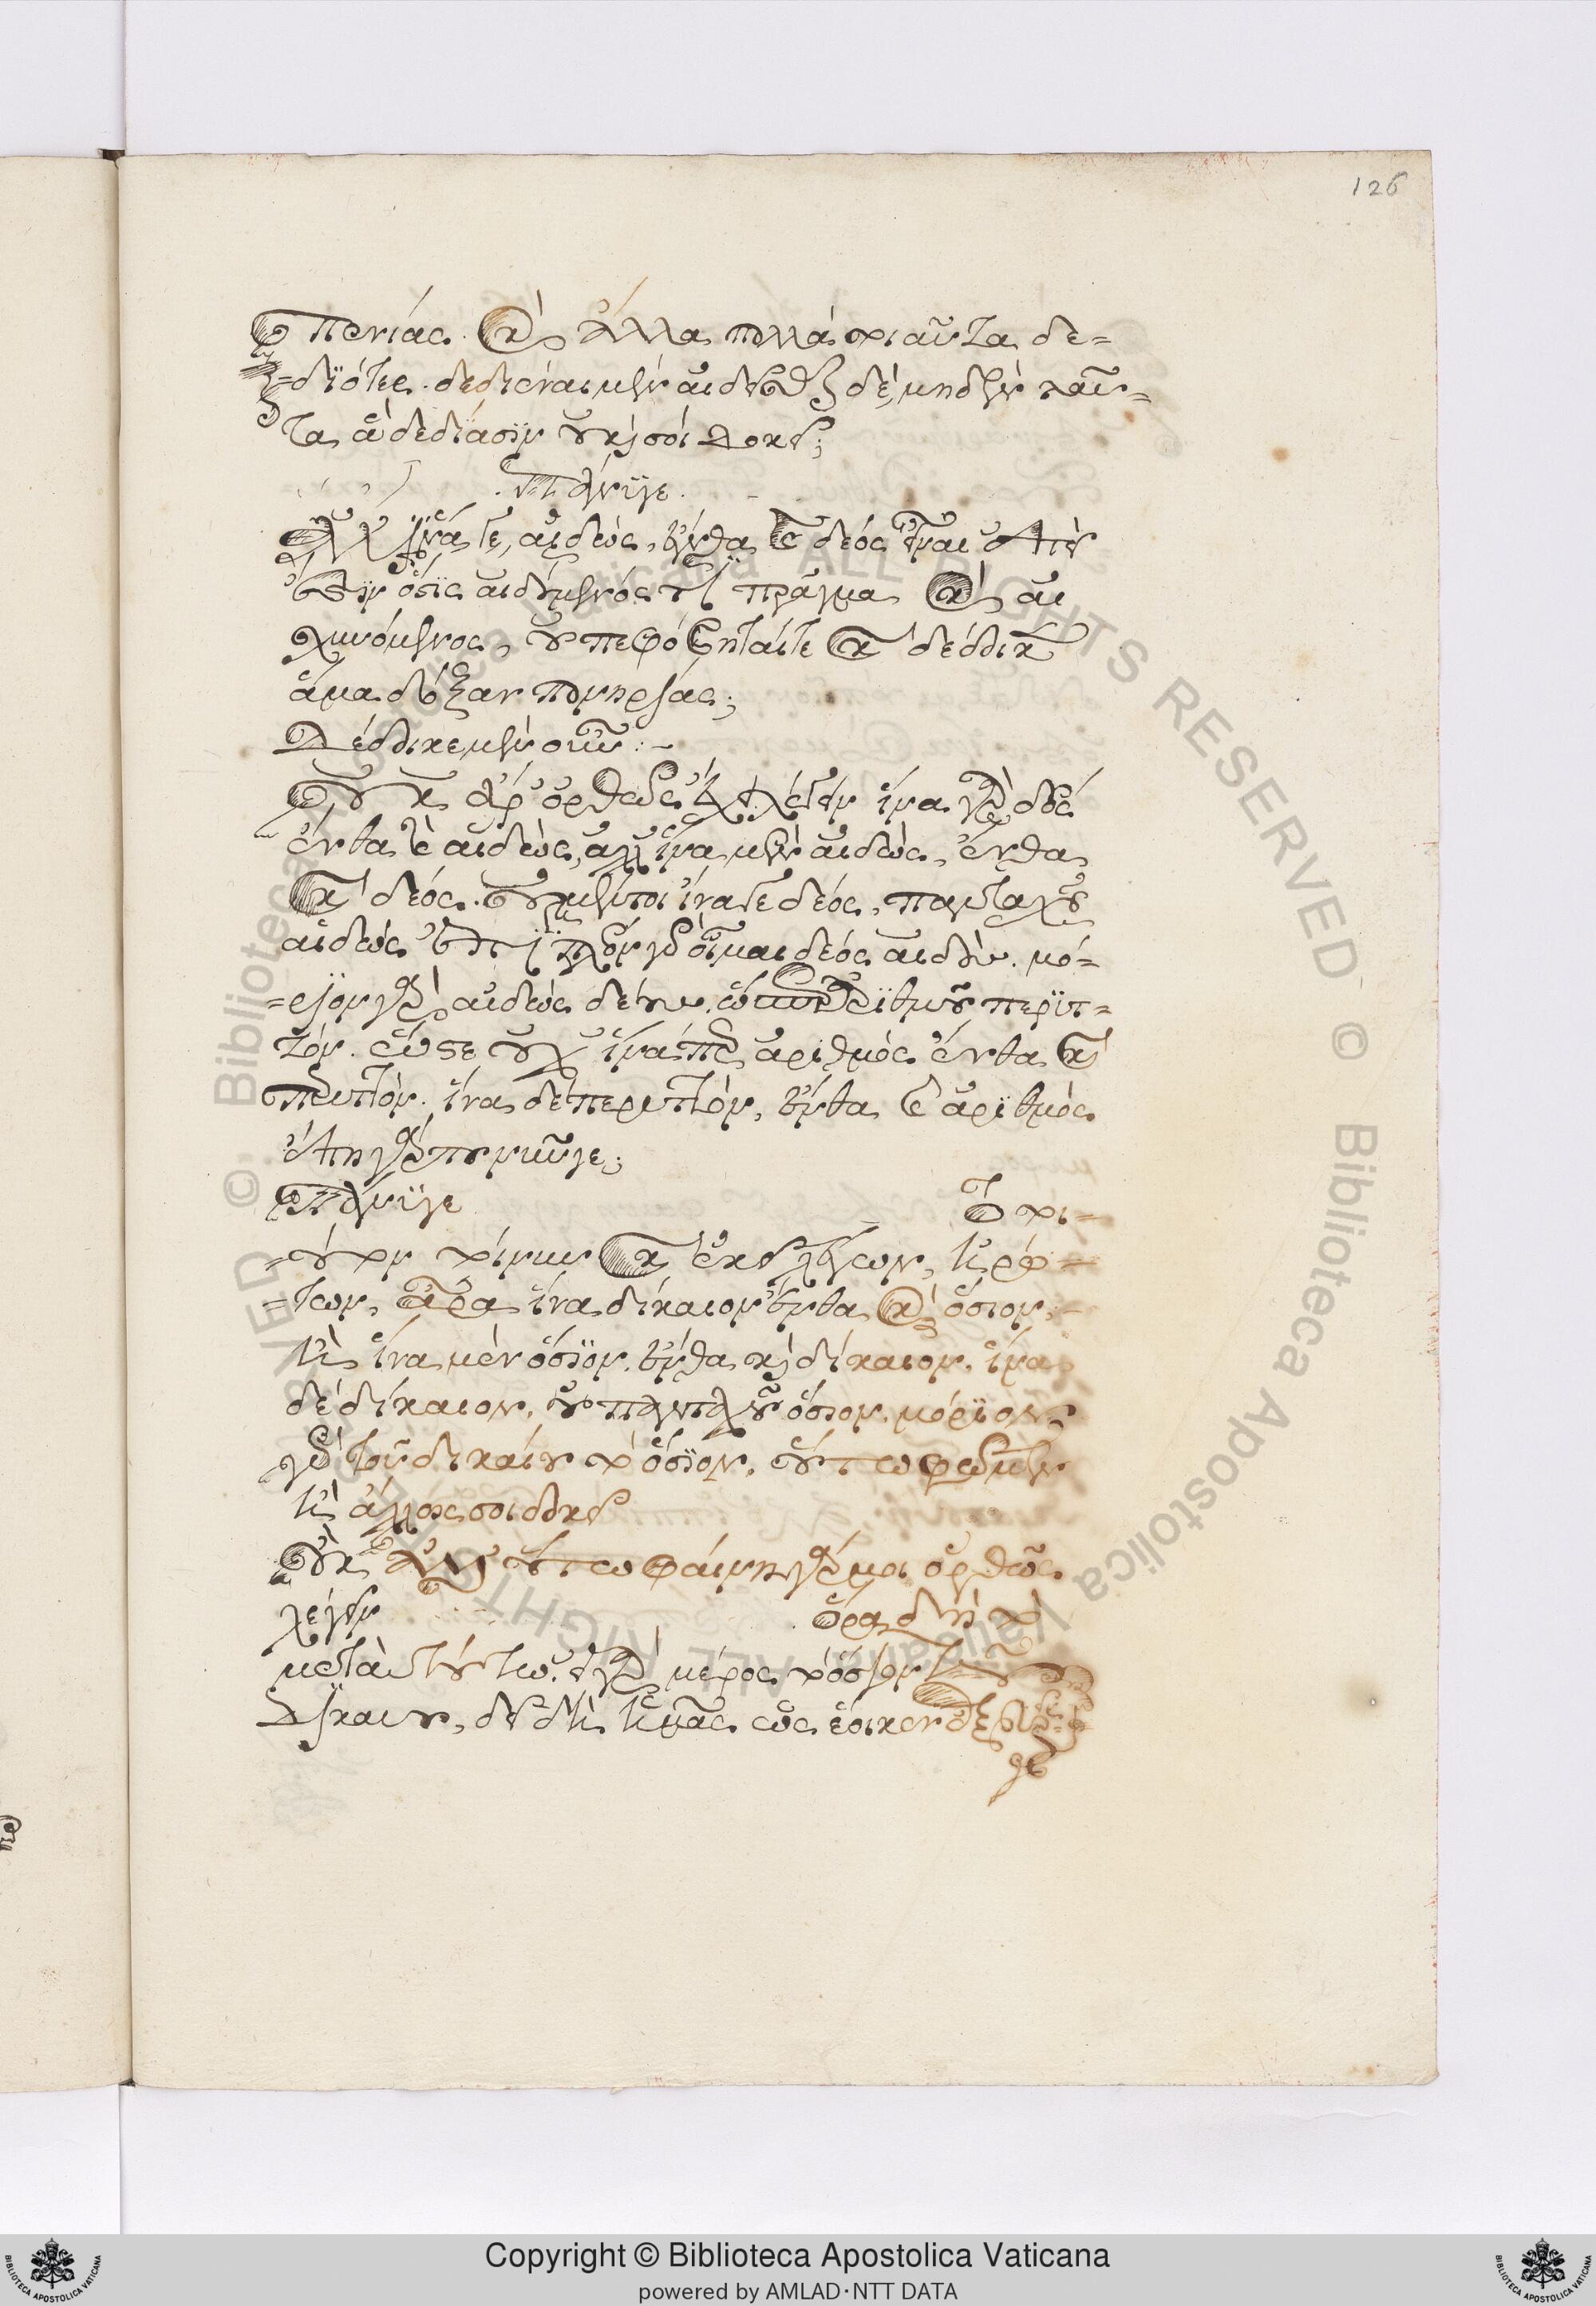 126
πενίας. καὶ ἄλλα πολλὰ τοιαῦτα δε=
=διότες. δεδιέναι μὲν αἰδεῖσθαι δὲ, μηδὲν ταῦ=
τα ἃ δεδίασιν οὐ καὶ σοὶ δοκεῖ;
πάνυ γε.
ἀλλ' ἵνα τε, αἰδὼς, ἔνθα καὶ δέος εἶναι
ἔστιν ὅστις αἰδούμενός τι πρᾶγμα καὶ αἰ
σχυνόμενος, οὐ πεφόβηταί τε καὶ δέδοικεν
ἅμα δόξαν πονηρίας;
Δέδοικε μὲν οὖν:
Οὐκ ἄρ' ὀρθῶς ἔχει λέγειν ἵνα γὰρ δέος
ἔνθα καὶ αἰδὼς, ἀλλ' ἵνα μὲν αἰδὼς, ἔνθα
καὶ δέος. οὐ μέντοι ἵνα γε δέος, πανταχοῦ
αἰδὼς ἐπὶ πλέον γὰρ οἶμαι δέος αἰδοῦς. μό=
=ριον γὰρ αἰδὼς δέους. ὥσπερ ἀριθμοῦ περιτ=
τόν. ὥστε οὐχ ἵνα περ ἀριθμὸς ἔνθα καὶ
περιττόν. ἵνα δὲ περιττόν, ἔνθα καὶ ἀριθμός
ἕπῃ γάρ που νῦν γε;
πάνυ γε Τὸ τοι=
=οῦτον τοίνυν καὶ ἐκεῖ λέγων, ἠρώ=
=των, ἆρα ἵνα δίκαιον ἔνθα καὶ ὅσιον,
ἢ ἵνα μὲν ὅσιον. ἔνθα καὶ δίκαιον. ἵνα
δὲ δίκαιον, οὐ πανταχοῦ ὅσιον. μόριον
γὰρ τοῦ δικαίου τὸ ὅσιον, οὕτω φῶμεν
ἢ ἄλλως σοι δοκεῖ
οὐκ ἀλλ' οὕτω φαίνῃ γάρ μοι ὀρθῶς
λέγειν ὅρα δὴ τὸ
μετὰ τοῦτο. εἰ γὰρ μέρος τὸ ὅσιον τοῦ
δικαίου, δεῖ δὴ ἡμᾶς ὡς ἔοικεν ἐξευρεῖν